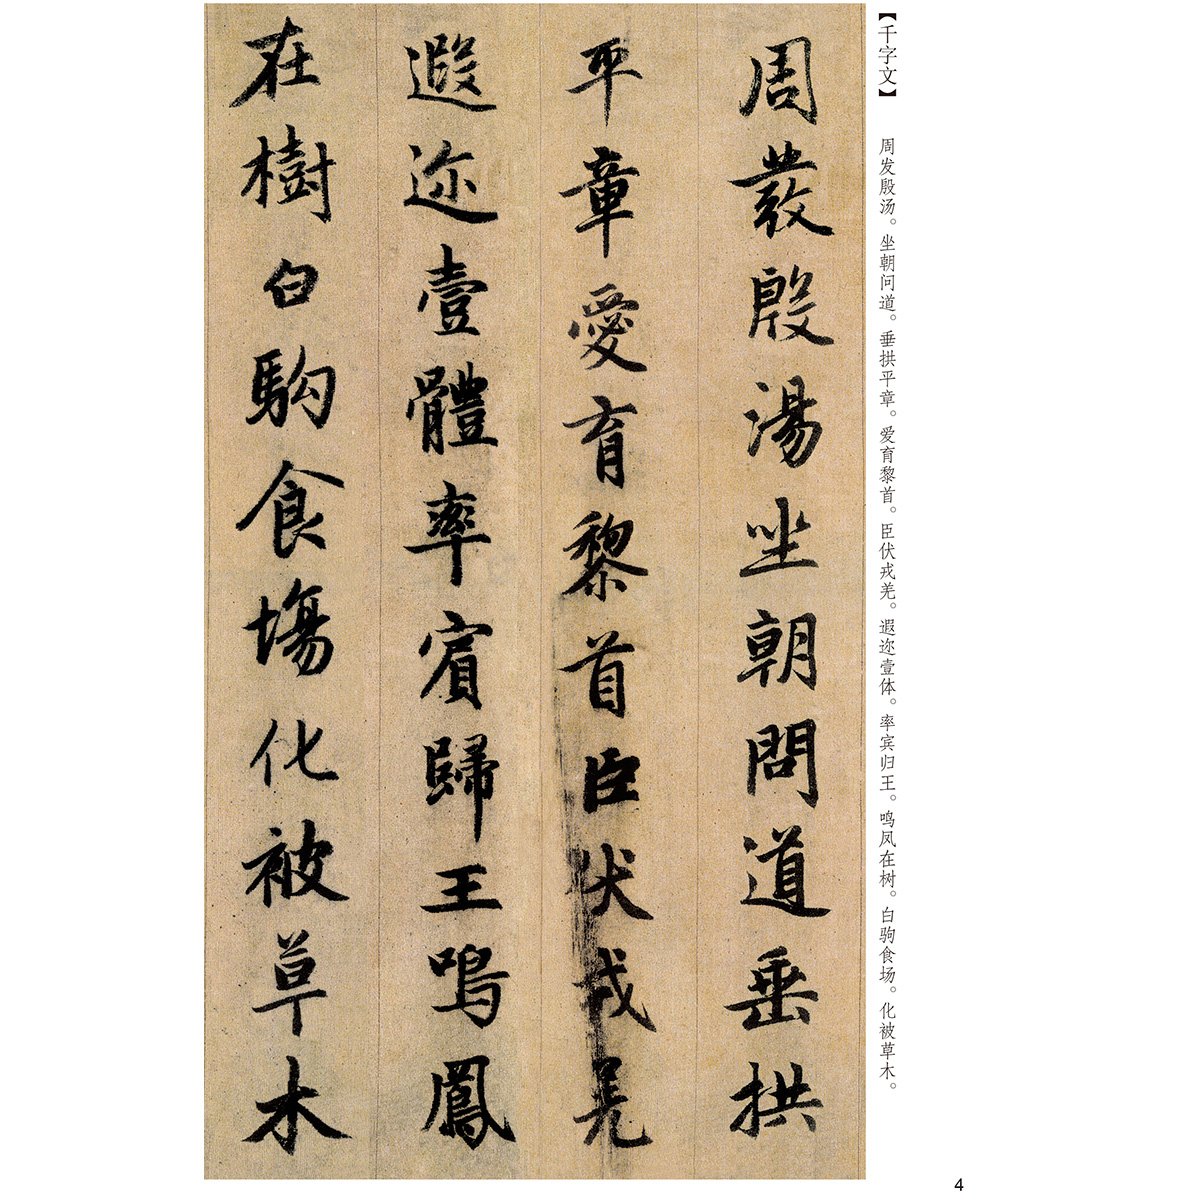 【千字文】 周发殷汤。坐朝问道。垂拱平章。爱育黎首。臣伏戎羌。遐迩壹体。率宾归王。鸣凤在树。白驹食场。化被草木。
周發殷湯坐朝問道垂拱
平章愛育黎首臣伏戎羌
遐迩壹體率賓歸王鳴鳳
在樹白駒食場化被草木
4